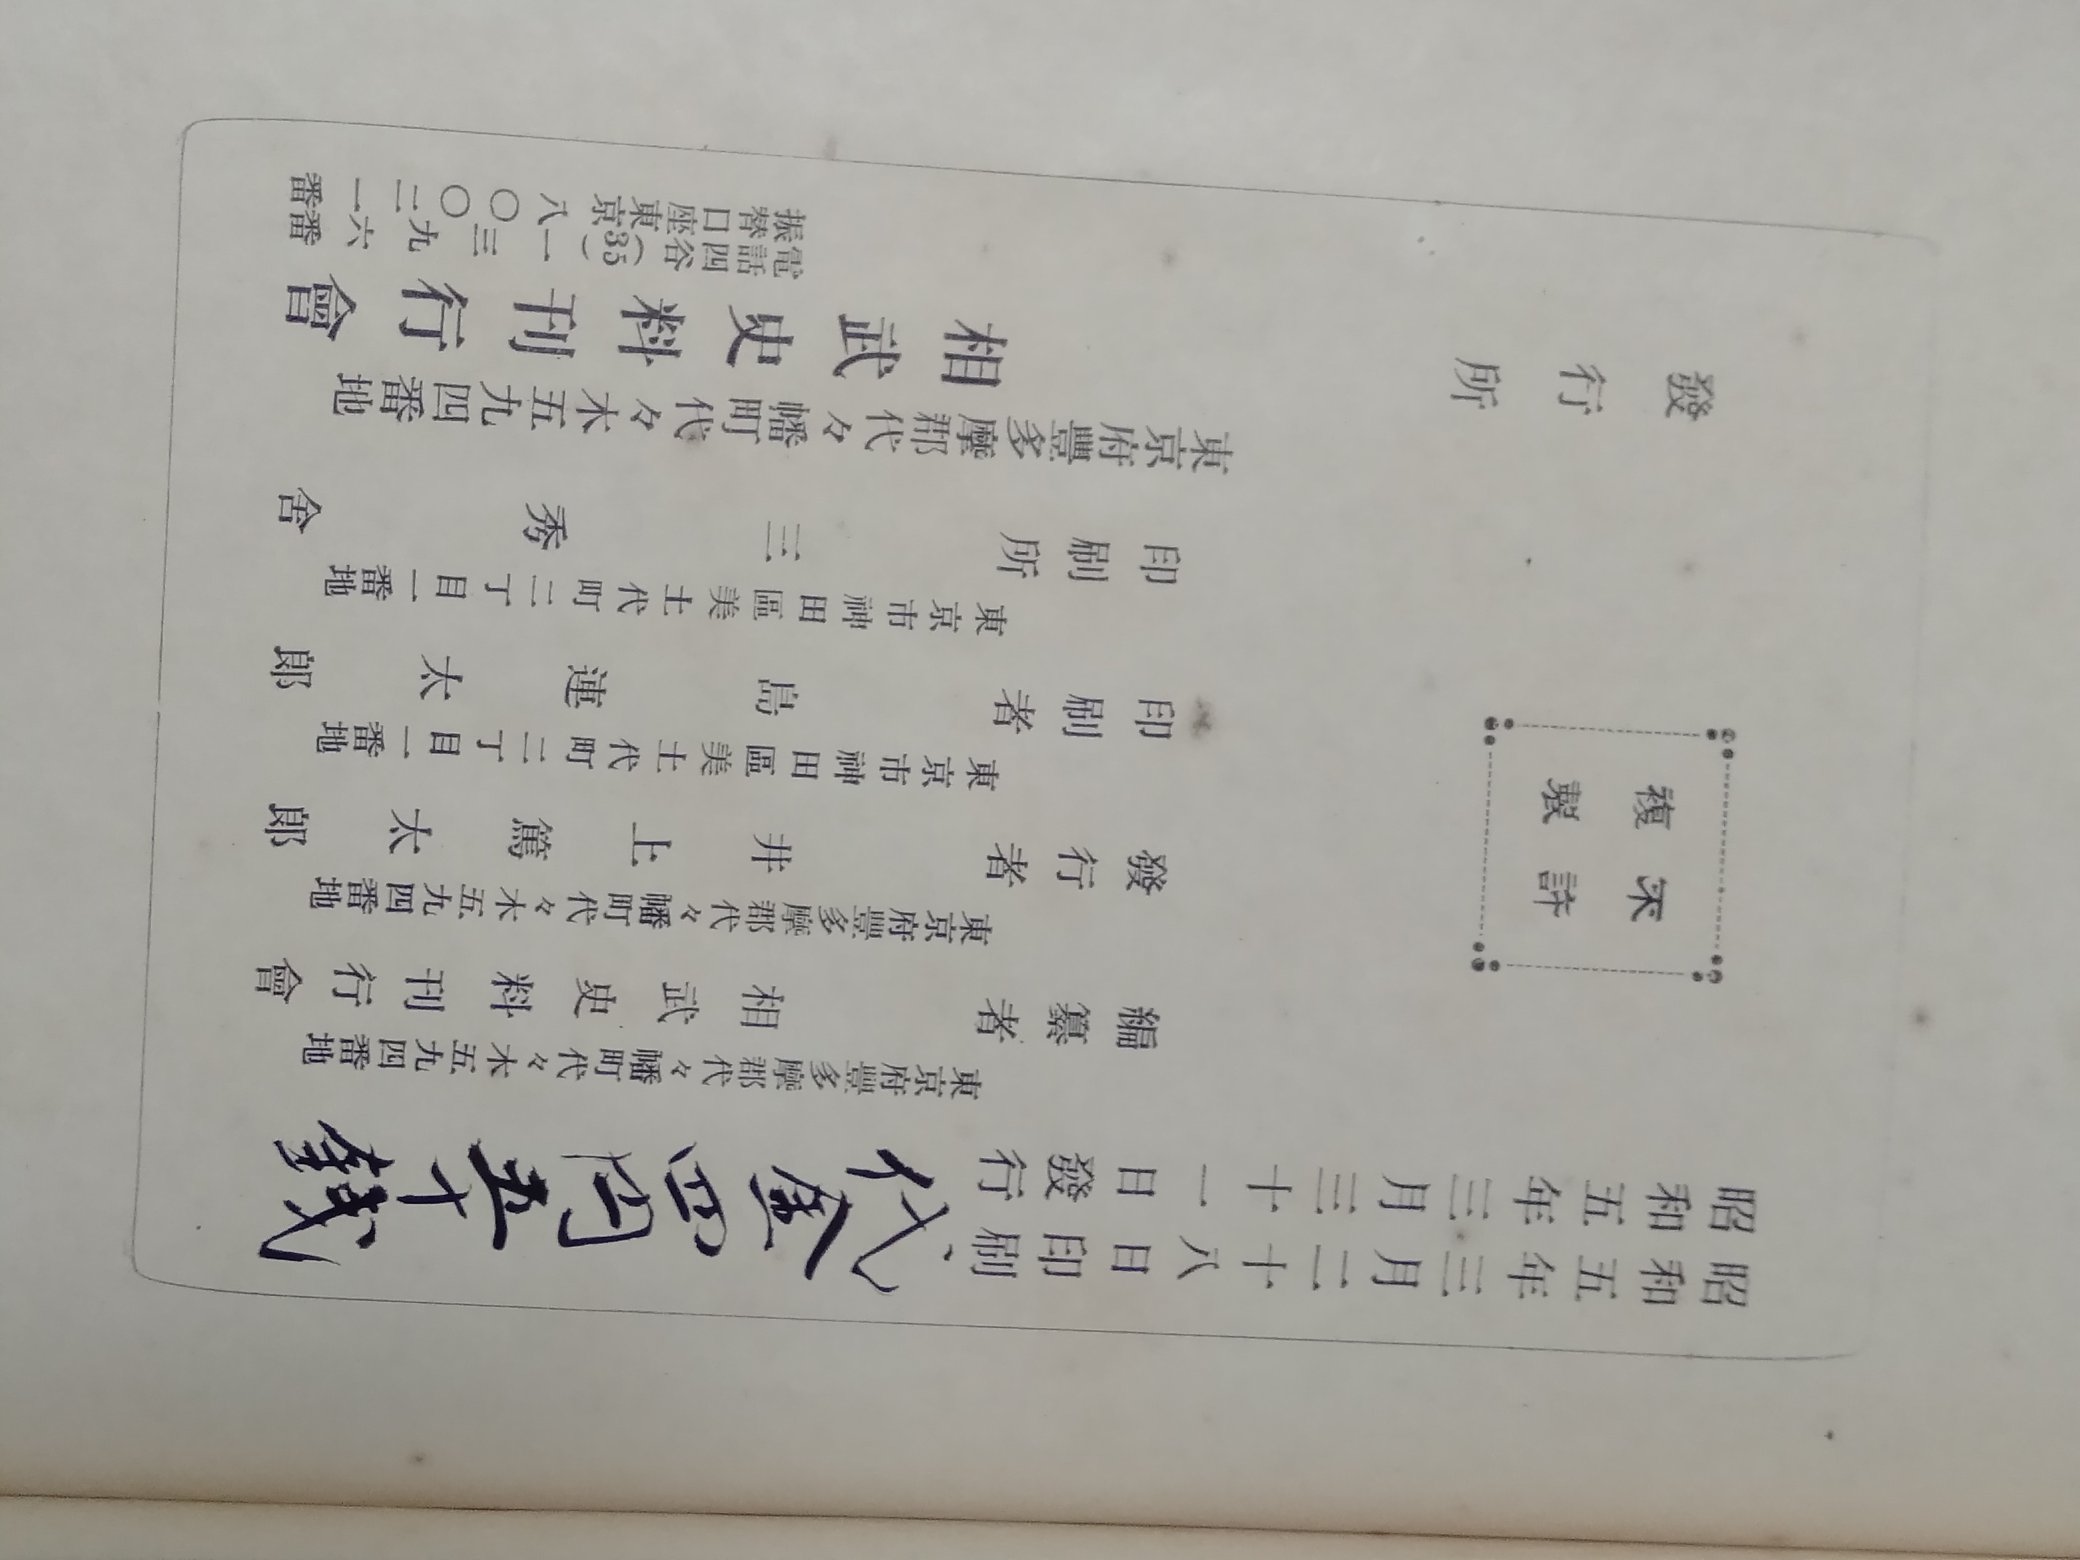 昭和五年三月二十八日印刷
昭和五年三月三十一日發行
代金四圓五十錢
不許
複製
東京府豐多摩郡代々幡町代々木五九四番地
編纂者 相武史料刊行會
東京府豐多摩郡代々幡町代々木五九四番地
發行者 井上篤太郎
東京市神田區美土代町二丁目一番地
印刷者 島連太郎
東京市神田區美土代町二丁目一番地
印刷所 三秀舍
東京府豐多摩郡代々幡町代々木五九四番地
發行所 相武史料刊行會
電話四谷(35)一三九六番
振替口座東京八〇〇二一番